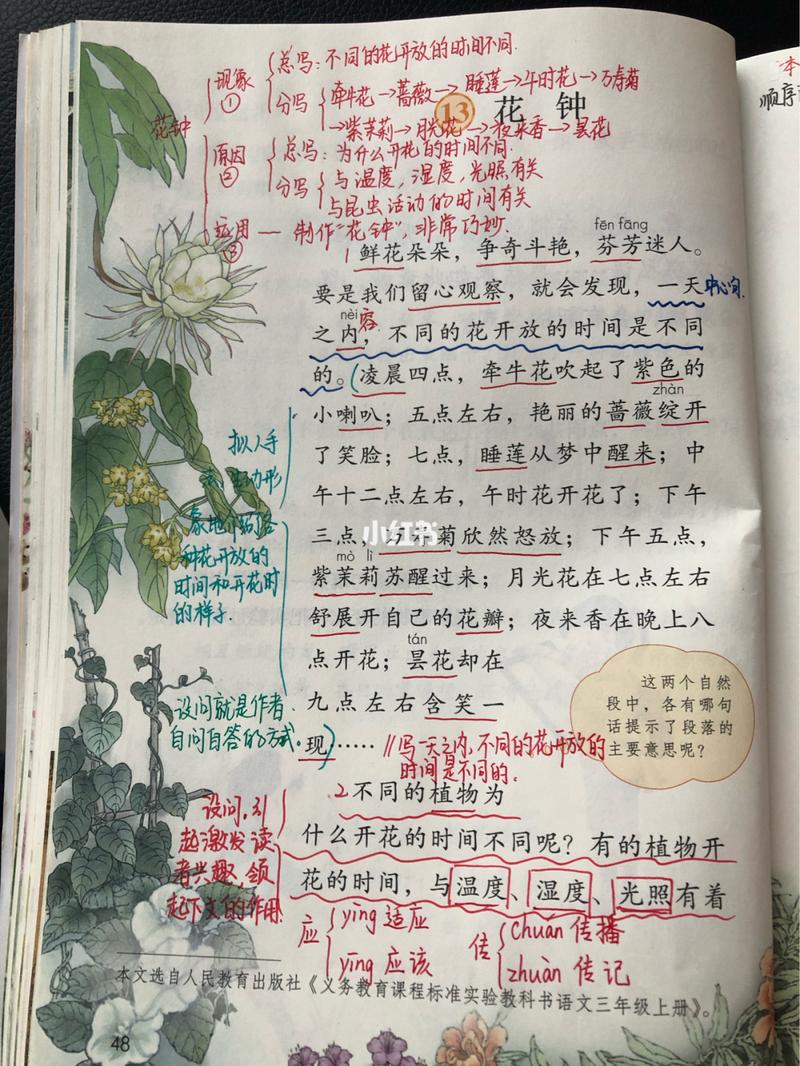 总写：不同的花开放的时间不同.
现象
①
分写
牵牛花→蔷薇→睡莲→午时花→万寿菊
→紫茉莉→月光花→夜来香→昙花
花钟
13 花钟
原因
②
总写：为什么开花的时间不同.
分写
与温度，湿度，光照有关
与昆虫活动的时间有关
运用
③
— 制作“花钟”，非常巧妙.
本
顺序
fēn fāng
1鲜花朵朵，争奇斗艳，芬芳迷人。
要是我们留心观察，就会发现，一天
中心句.
nèi
容
之内，不同的花开放的时间是不同
的。(凌晨四点，牵牛花吹起了紫色的
zhàn
小喇叭；五点左右，艳丽的蔷薇绽开
了笑脸；七点，睡莲从梦中醒来；中
午十二点左右，午时花开花了；下午
三点，万寿菊欣然怒放；下午五点，
小红书
mò lì
紫茉莉苏醒过来；月光花在七点左右
舒展开自己的花瓣；夜来香在晚上八
tán
点开花；昙花却在
九点左右含笑一
现)……
拟人手
法，生动形
象地介绍了各
种花开放的
时间和开花时
的样子.
这两个自然
段中，各有哪句
话提示了段落的
主要意思呢？
设问就是作者
自问自答的方式.
//写一天之内，不同的花开放的
时间是不同的.
2不同的植物为
什么开花的时间不同呢？有的植物开
花的时间，与温度、湿度、光照有着
设问，引
起激发读
者兴趣，领
起下文的作用
应
yìng 适应
yīng 应该
传
chuán 传播
zhuàn 传记
本文选自人民教育出版社《义务教育课程标准实验教科书语文三年级上册》。
48